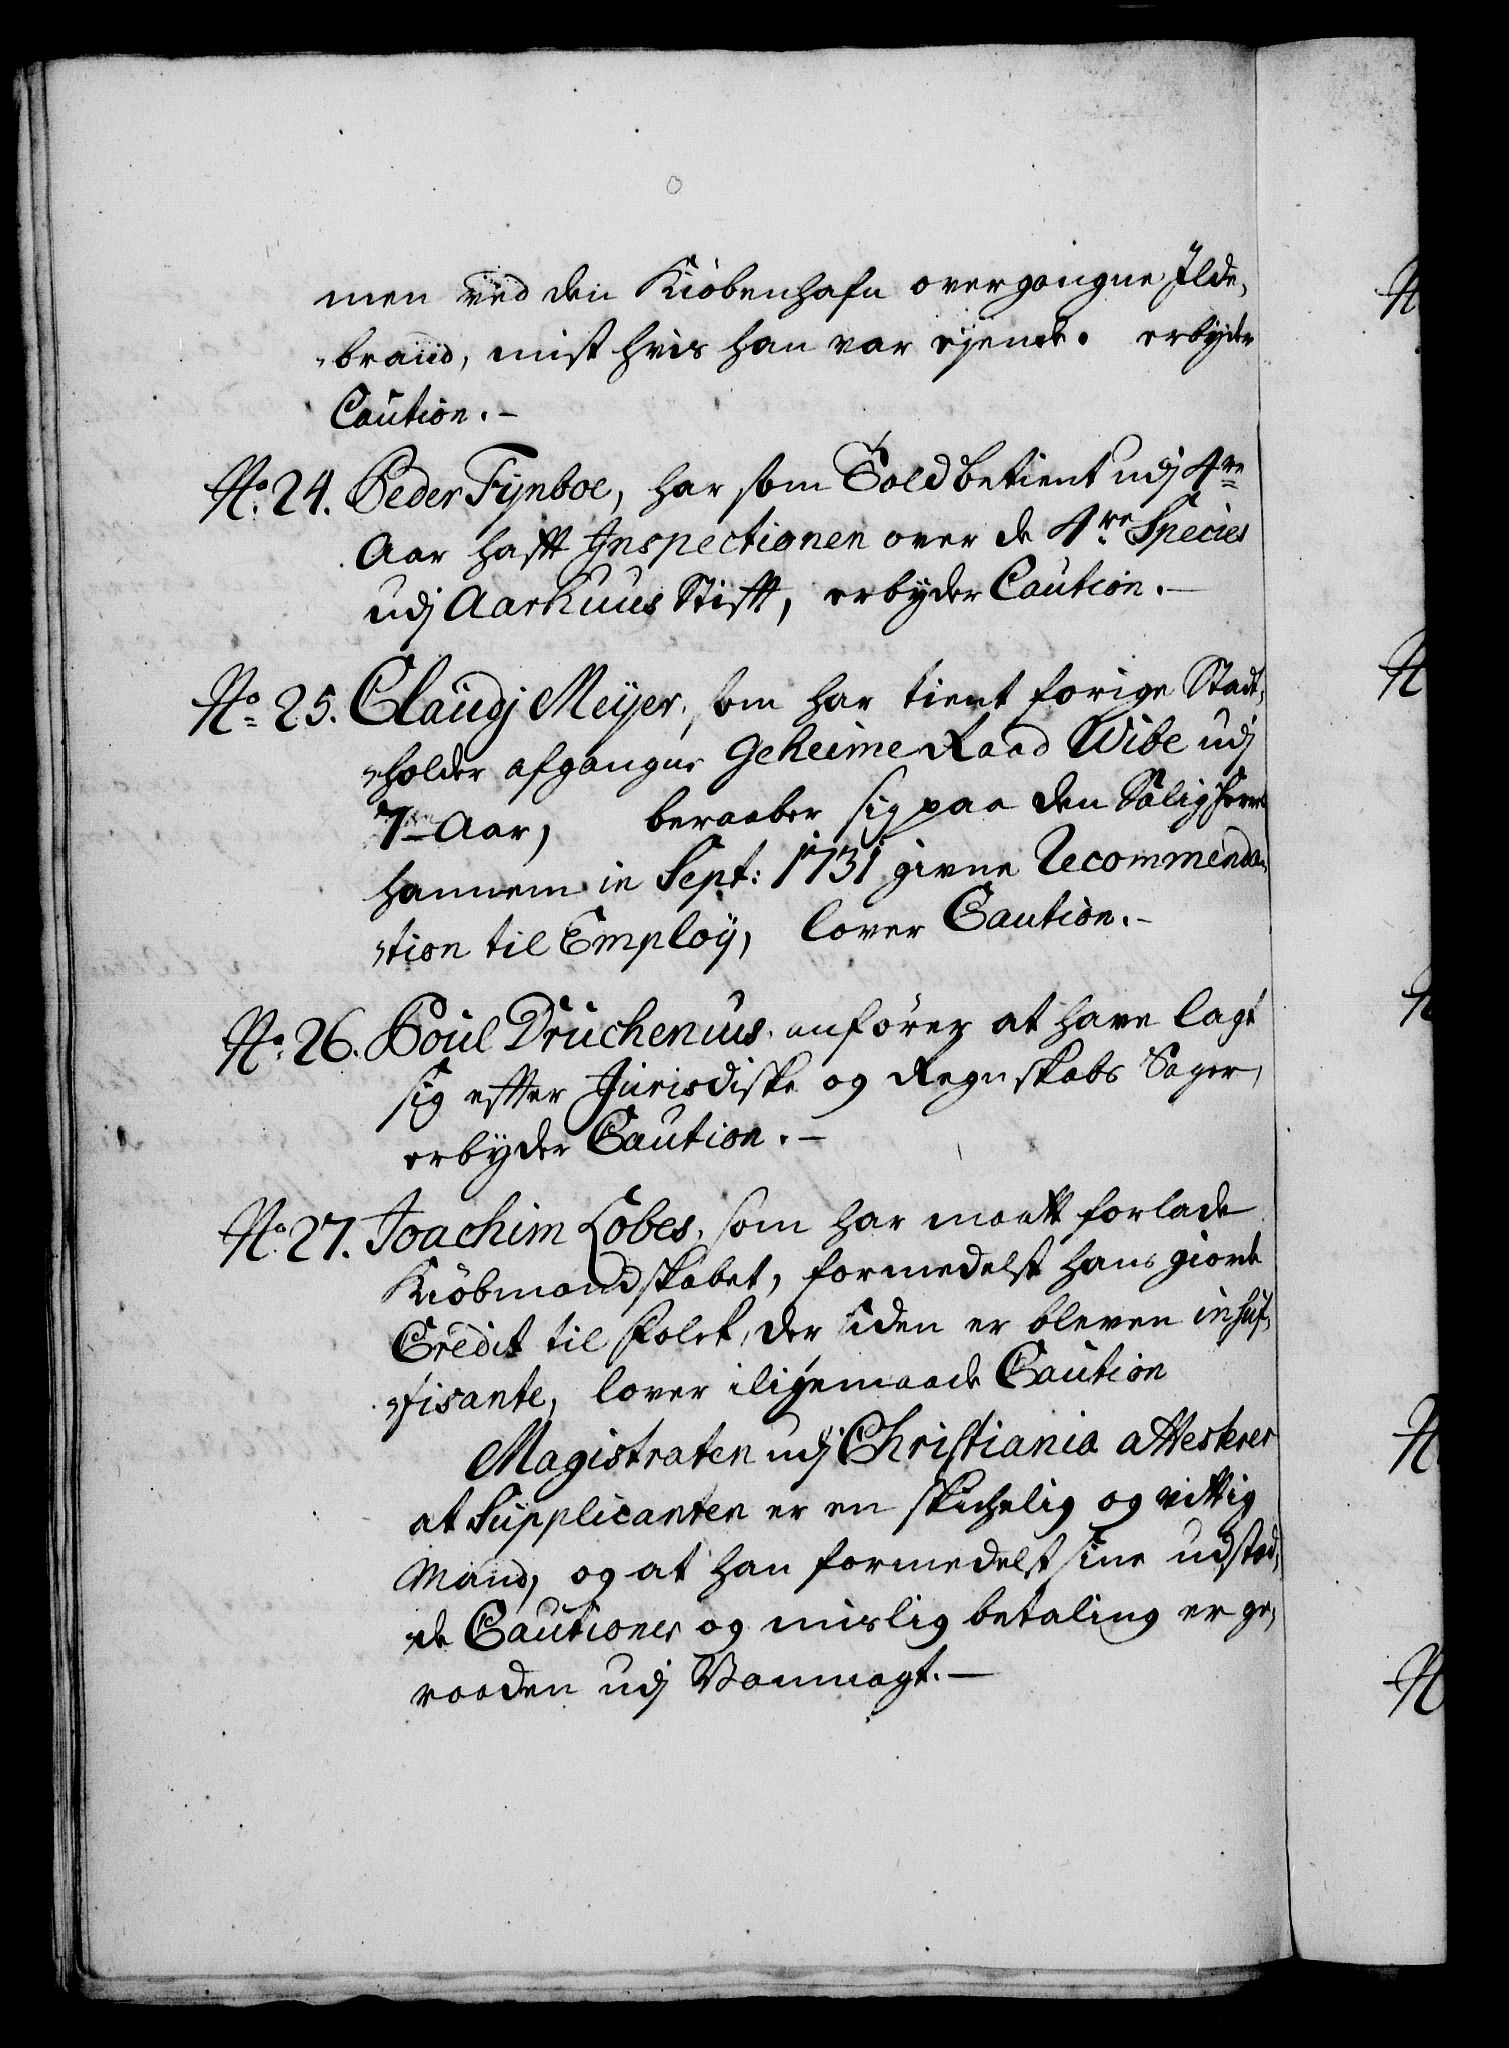 men ved den Kiöbenhafn overgangne Ilde,
brand, mist hvis han var ejende. erbyder
Caution.-
No. 24. Peder Fynboe, har som Toldbetient udj 4re
Aar hafft Inspectionen over de 4re Species
udj Aarhuus Stifft, erbyder Caution.-
No. 25. Claudj Meyer, som har tient forige Stadt,
holder afgangne Geheime Raad Wibe udj
7 Aar, beraaber sig paa den Salig Herre
hannem in Sept: 1731 givne Recommenda,
tion til Employ, lover Caution.-
No. 26. Poul Druchenius, anförer at have lagt
sig efter Jurisdiske og Regnskabs Sager,
erbyder Caution.-
No. 27. Joachim Lobes, som har maatt forlade
Kiöbmandskabet, formedelst hans giorde
Credit til Folck, der siden er bleven insuf,
fisante, lover iligemaade Caution
Magistraten udj Christiania attesterer
at Supplicanten er en skichelig og vittig
Mand, og at han formedelst sine udstæd,
de Cautioner og mislig betaling er ge,
raaden udj Vanmagt.-